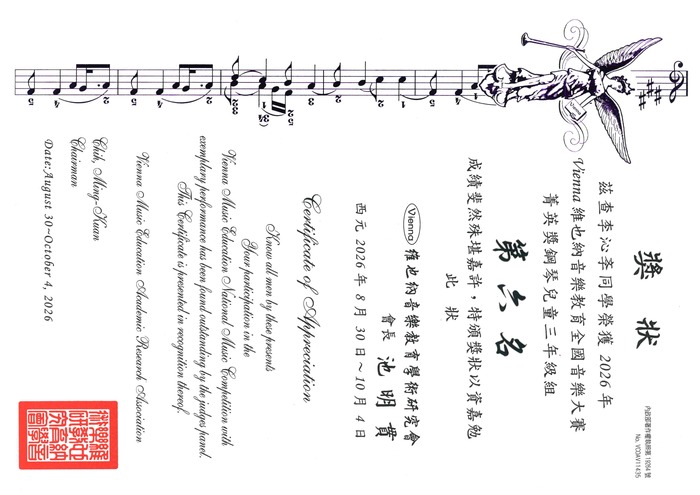 內政部著作權執照第 19264 號
No. VCDAV11435
獎狀
茲查李沁李同學榮獲 2026 年
Vienna 維也納音樂教育全國音樂大賽
菁英獎鋼琴兒童三年級組
第六名
成績斐然殊堪嘉許，特頒獎狀以資嘉勉
此狀
Vienna 維也納音樂教育學術研究會
會長 池明貴
西元 2026 年 8 月 30 日～10 月 4 日
Certificate of Appreciation
Know all men by these presents
Your participation in the
Vienna Music Education National Music Competition with
exemplary performance has been found outstanding by the judges panel.
This Certificate is presented in recognition thereof.
Vienna Music Education Academic Research Association
Chih, Ming-Kuan
Chairman
Date:August 30~October 4, 2026